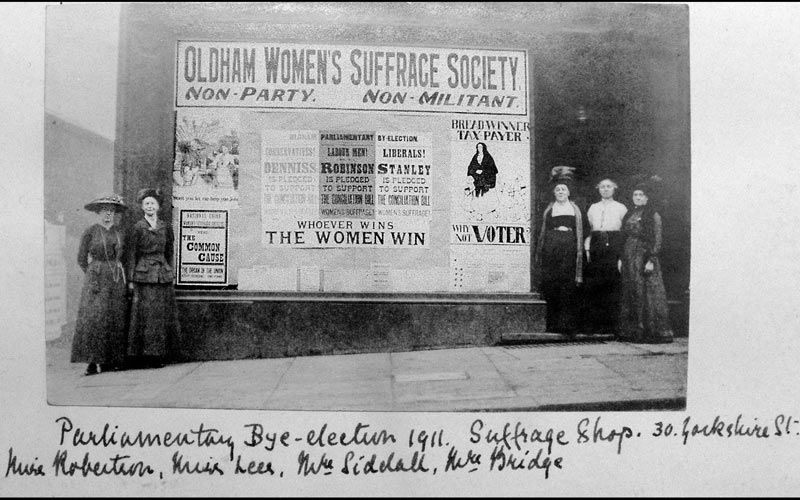 OLDHAM WOMEN'S SUFFRAGE SOCIETY.
NON-PARTY. NON-MILITANT.
OLDHAM PARLIAMENTARY BY-ELECTION.
CONSERVATIVES!
DENNISS
IS PLEDGED
TO SUPPORT
THE CONCILIATION BILL
LABOUR MEN!
ROBINSON
IS PLEDGED
TO SUPPORT
THE CONCILIATION BILL
WOMEN'S SUFFRAGE
LIBERALS!
STANLEY
IS PLEDGED
TO SUPPORT
THE CONCILIATION BILL
WOMEN'S SUFFRAGE!
WHOEVER WINS
THE WOMEN WIN
BREADWINNER
TAX-PAYER
WHY NOT VOTER
Won't you let me help you John
NATIONAL UNION
THE
COMMON
CAUSE
THE ORGAN OF THE UNION
Parliamentary Bye-election 1911. Suffrage Shop. 30. Yorkshire St.
Miss Robertson, Miss Lees, Mrs Siddall, Mrs Bridge